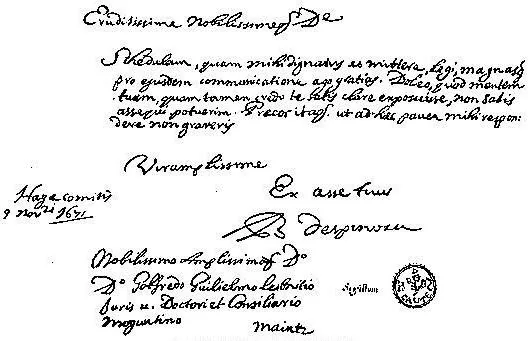 Eruditissime Nobilissimeq; De
Schedulam, quam mihi dignatus es mittere, legi, magnasq;
pro ejusdem communicatione ago gratias. Doleo, quod mentem
tuam, quam tamen credo te satis clare exposuisse, non satis
assequi potuerim. Precor itaq; ut ad haec pauca mihi respon
dere non graveris
Vir amplissime
Ex asse tuus
Haga comitis
9 Novri 1671
B despinosa
Nobilissimo Amplissimoq; Do
Do Gotfredo Guilielmo Leibnitio
Juris u. Doctori et Consiliario
Moguntino Maintz
Sigillum
CAUTE